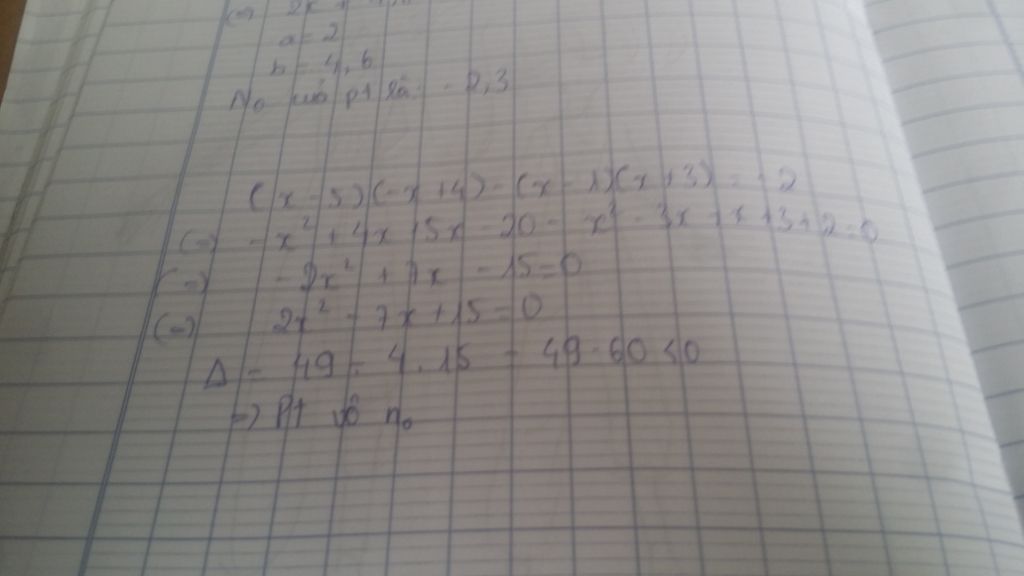 (=) 2x +
a = 2
b = 4,6
No của pt là - 2,3
(x - 5)(-x + 4) - (x - 1)(x + 3) = -2
(=) - x² + 4x + 5x - 20 - x² - 3x + x + 3 + 2 = 0
(=) - 2x² + 7x - 15 = 0
(=) 2x² - 7x + 15 = 0
Δ = 49 - 4.15 = 49 - 60 < 0
=) Pt vô no